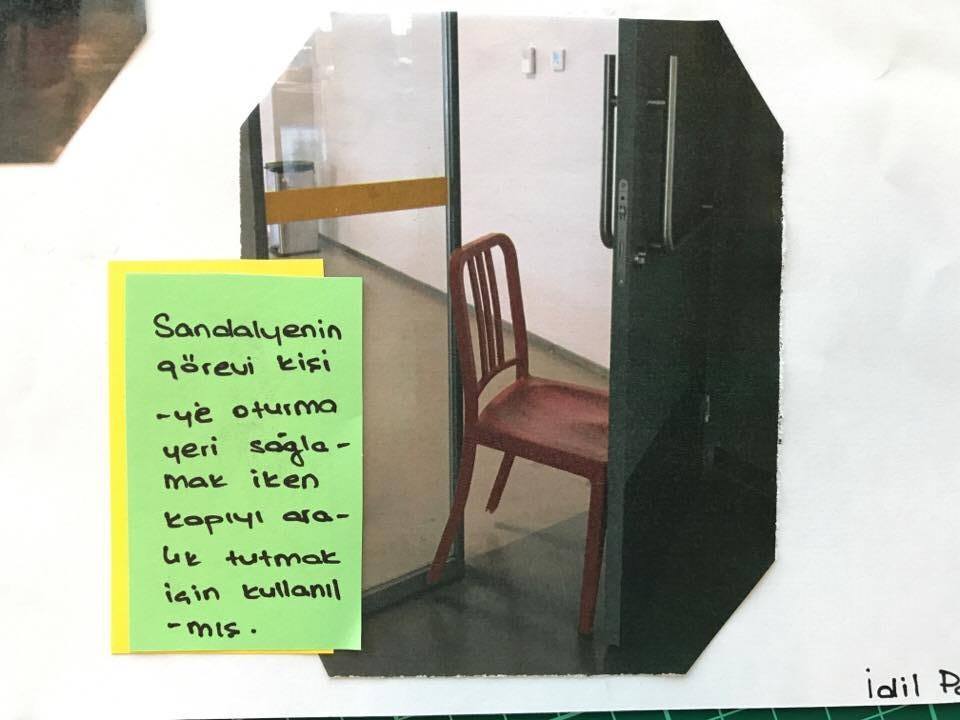 Sandalyenin
görevi kişi
-ye oturma
yeri sağla-
mak iken
kapıyı ara-
lık tutmak
için kullanıl
-mış.
İdil